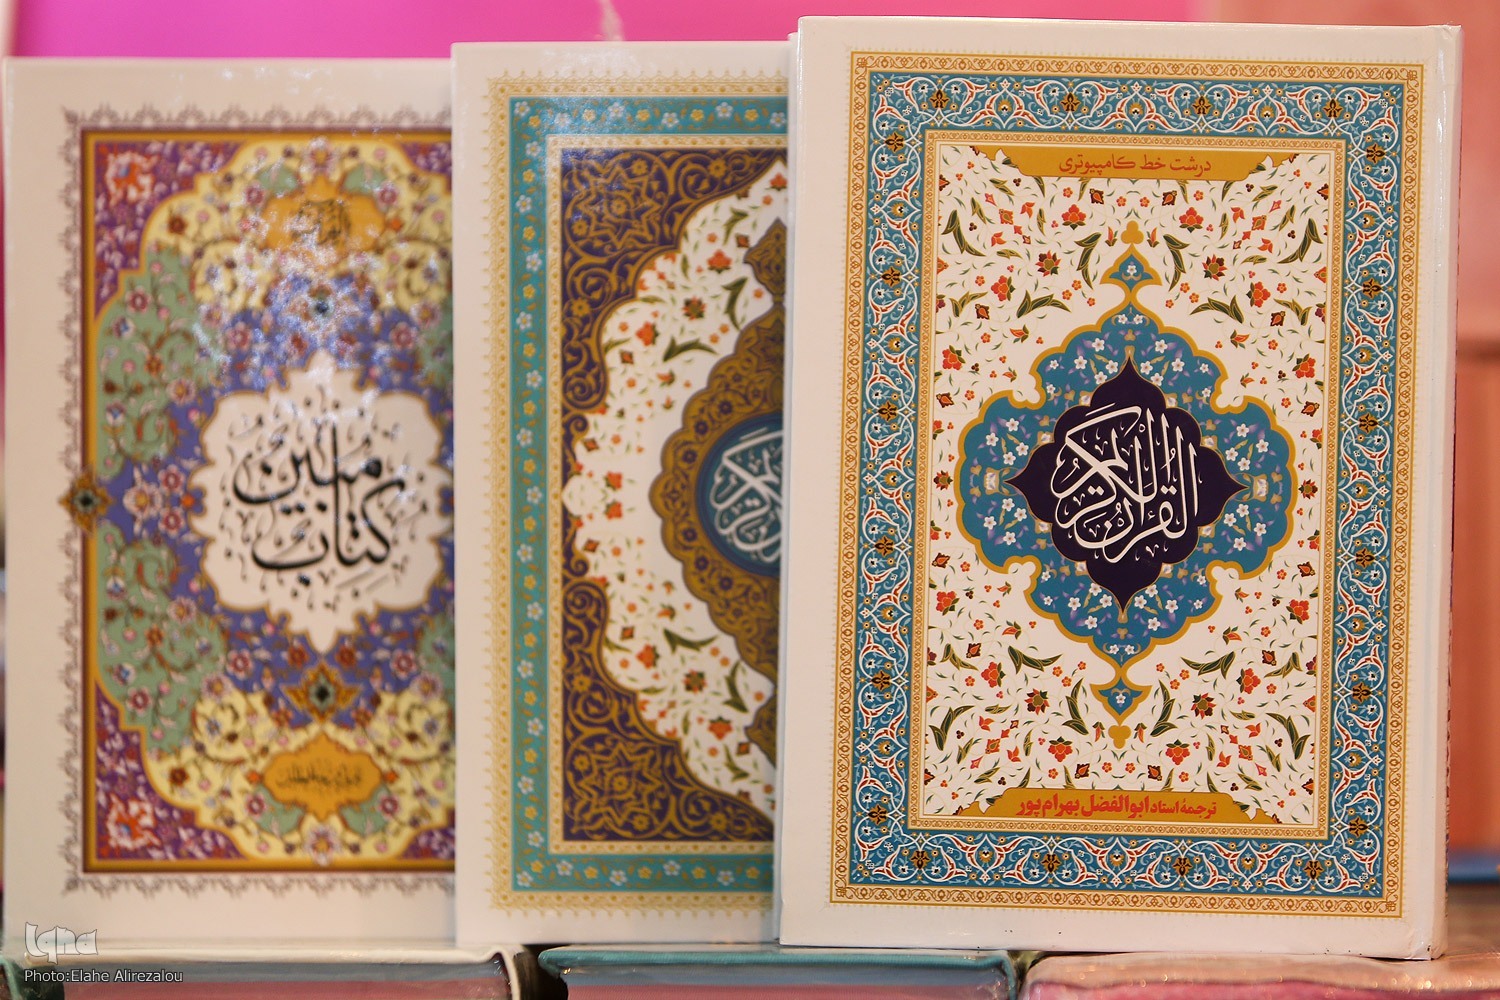 درشت خط کامپیوتری
القرآن الکریم
ترجمهٔ استاد ابوالفضل بهرام‌پور
کتاب مبین
Iqna
Photo:Elahe Alirezalou